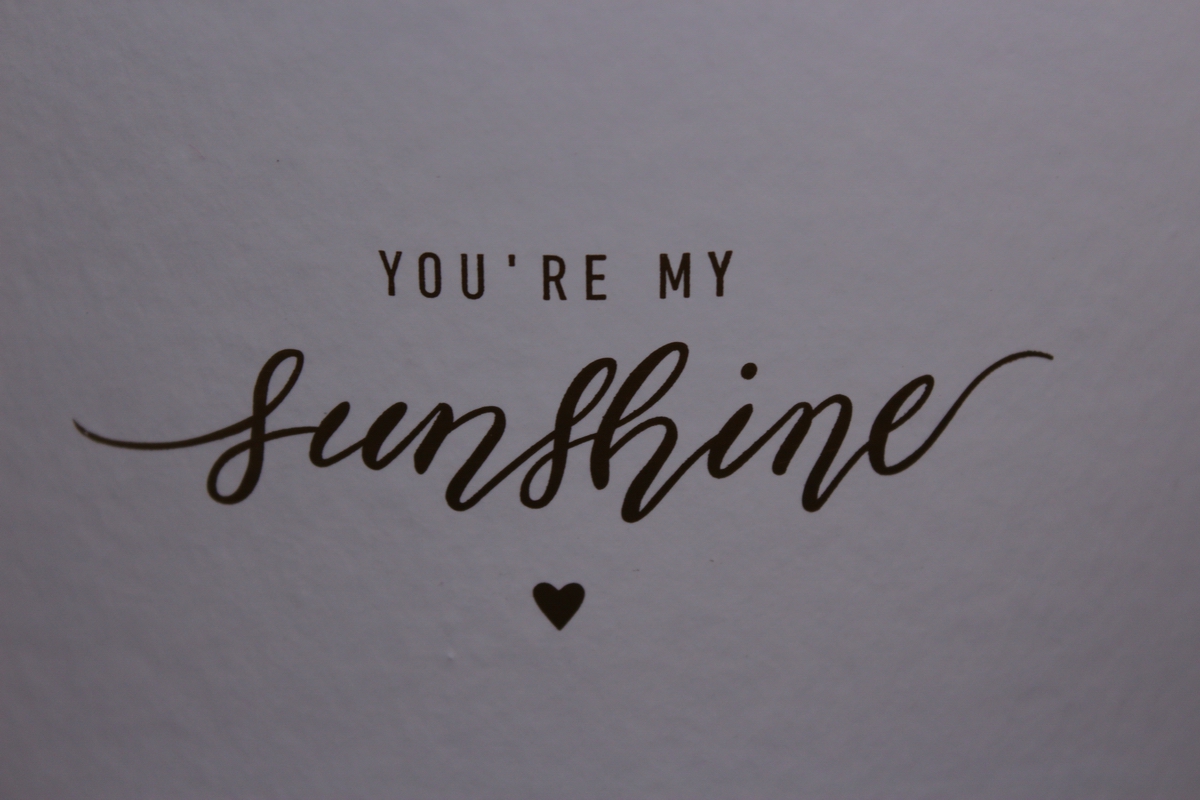 YOU'RE MY
sunshine